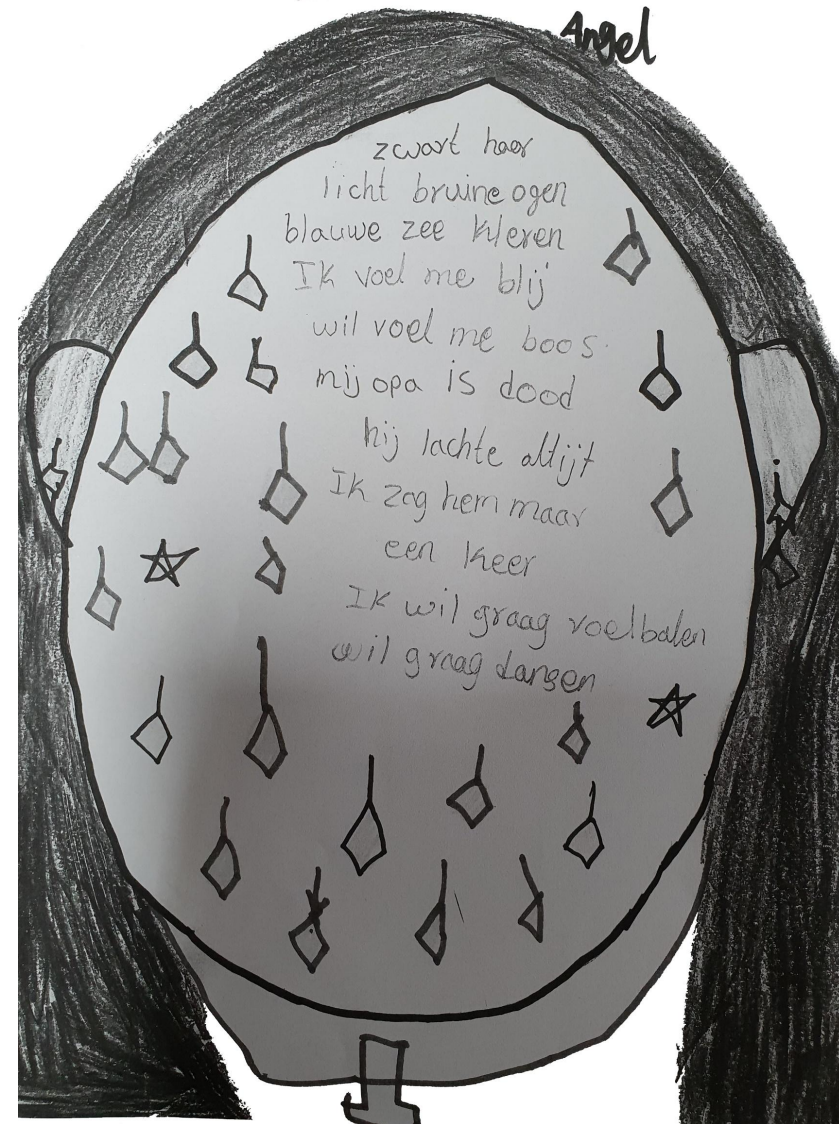 Angel
zwart haar
licht bruine ogen
blauwe zee kleren
Ik voel me blij
wil voel me boos.
mij opa is dood
hij lachte altijt
Ik zag hem maar
een keer
Ik wil graag voelbalen
wil graag dansen